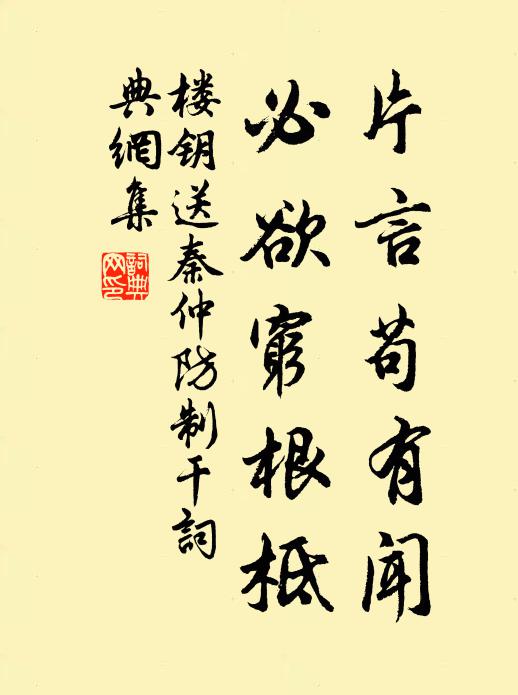 片言苟有闻
必欲穷根柢
楼钥送秦仲防制干词
典網集
詞典網印